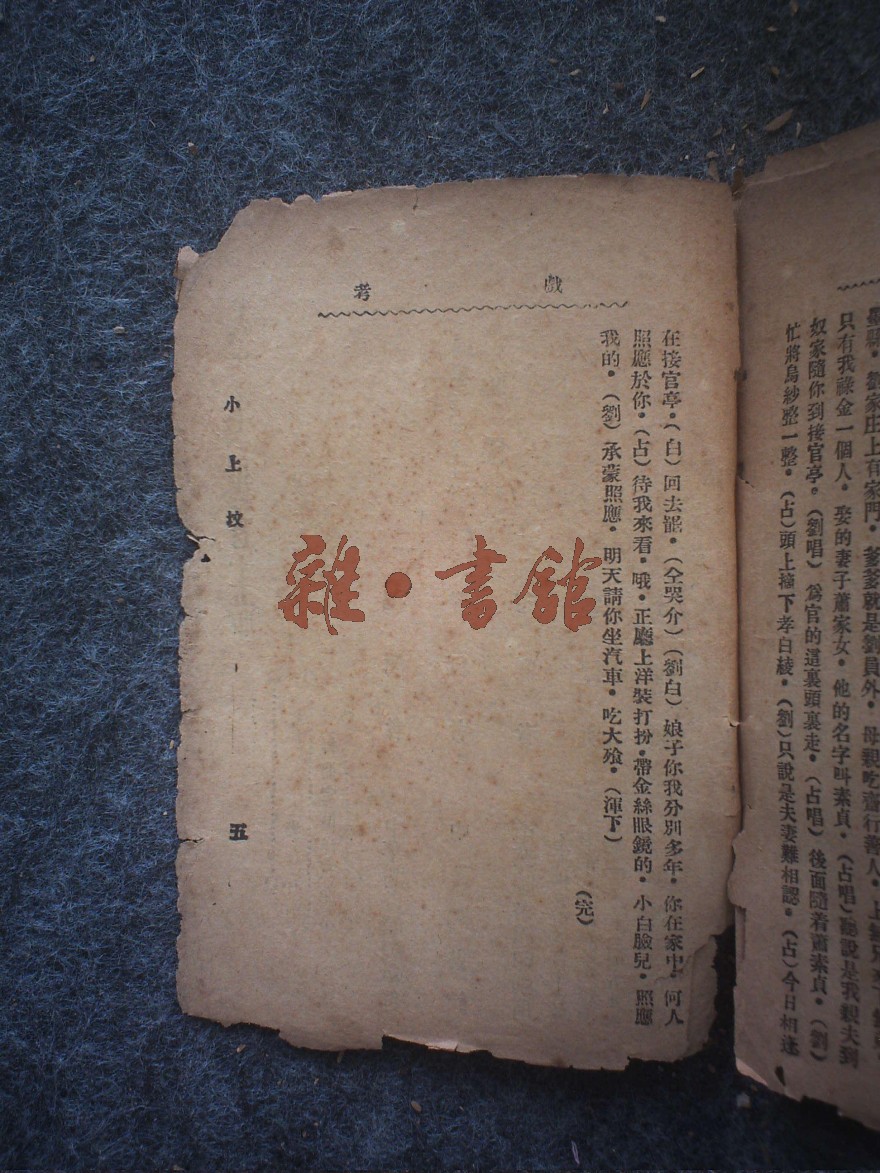 戲考
在接官亭•(白)回去罷•(仝哭介)(劉白)娘子你我分別多年•你在家中•何人
照應於你•(占)待我來看•哦•正廳上洋裝打扮•帶金絲眼鏡的•小白臉兒•照應
我的•(劉)承蒙照應•明天請你坐汽車•吃大飱•(渾下)
(完)
小上坟
五
雜•書館
劉家庄上有家門•爹爹就是劉員外•母親吃齋行善人•上無兄
只有我祿金一個人•娶的妻子蕭家女•他的名字叫素貞•(占唱)聽說是我親夫到
奴家隨你到接官亭•(劉唱)爲官的這裏頭裏走•(占唱)後面隨着蕭素貞•(劉)
忙將烏紗整一整•(占)頭上摘下孝白綾•(劉)只說是夫妻難相認•(占)今日相逢